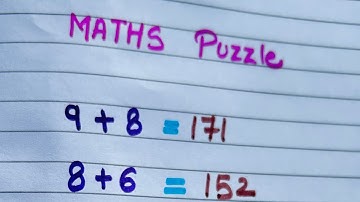 MATHS Puzzle
9 + 8 = 171
8 + 6 = 152